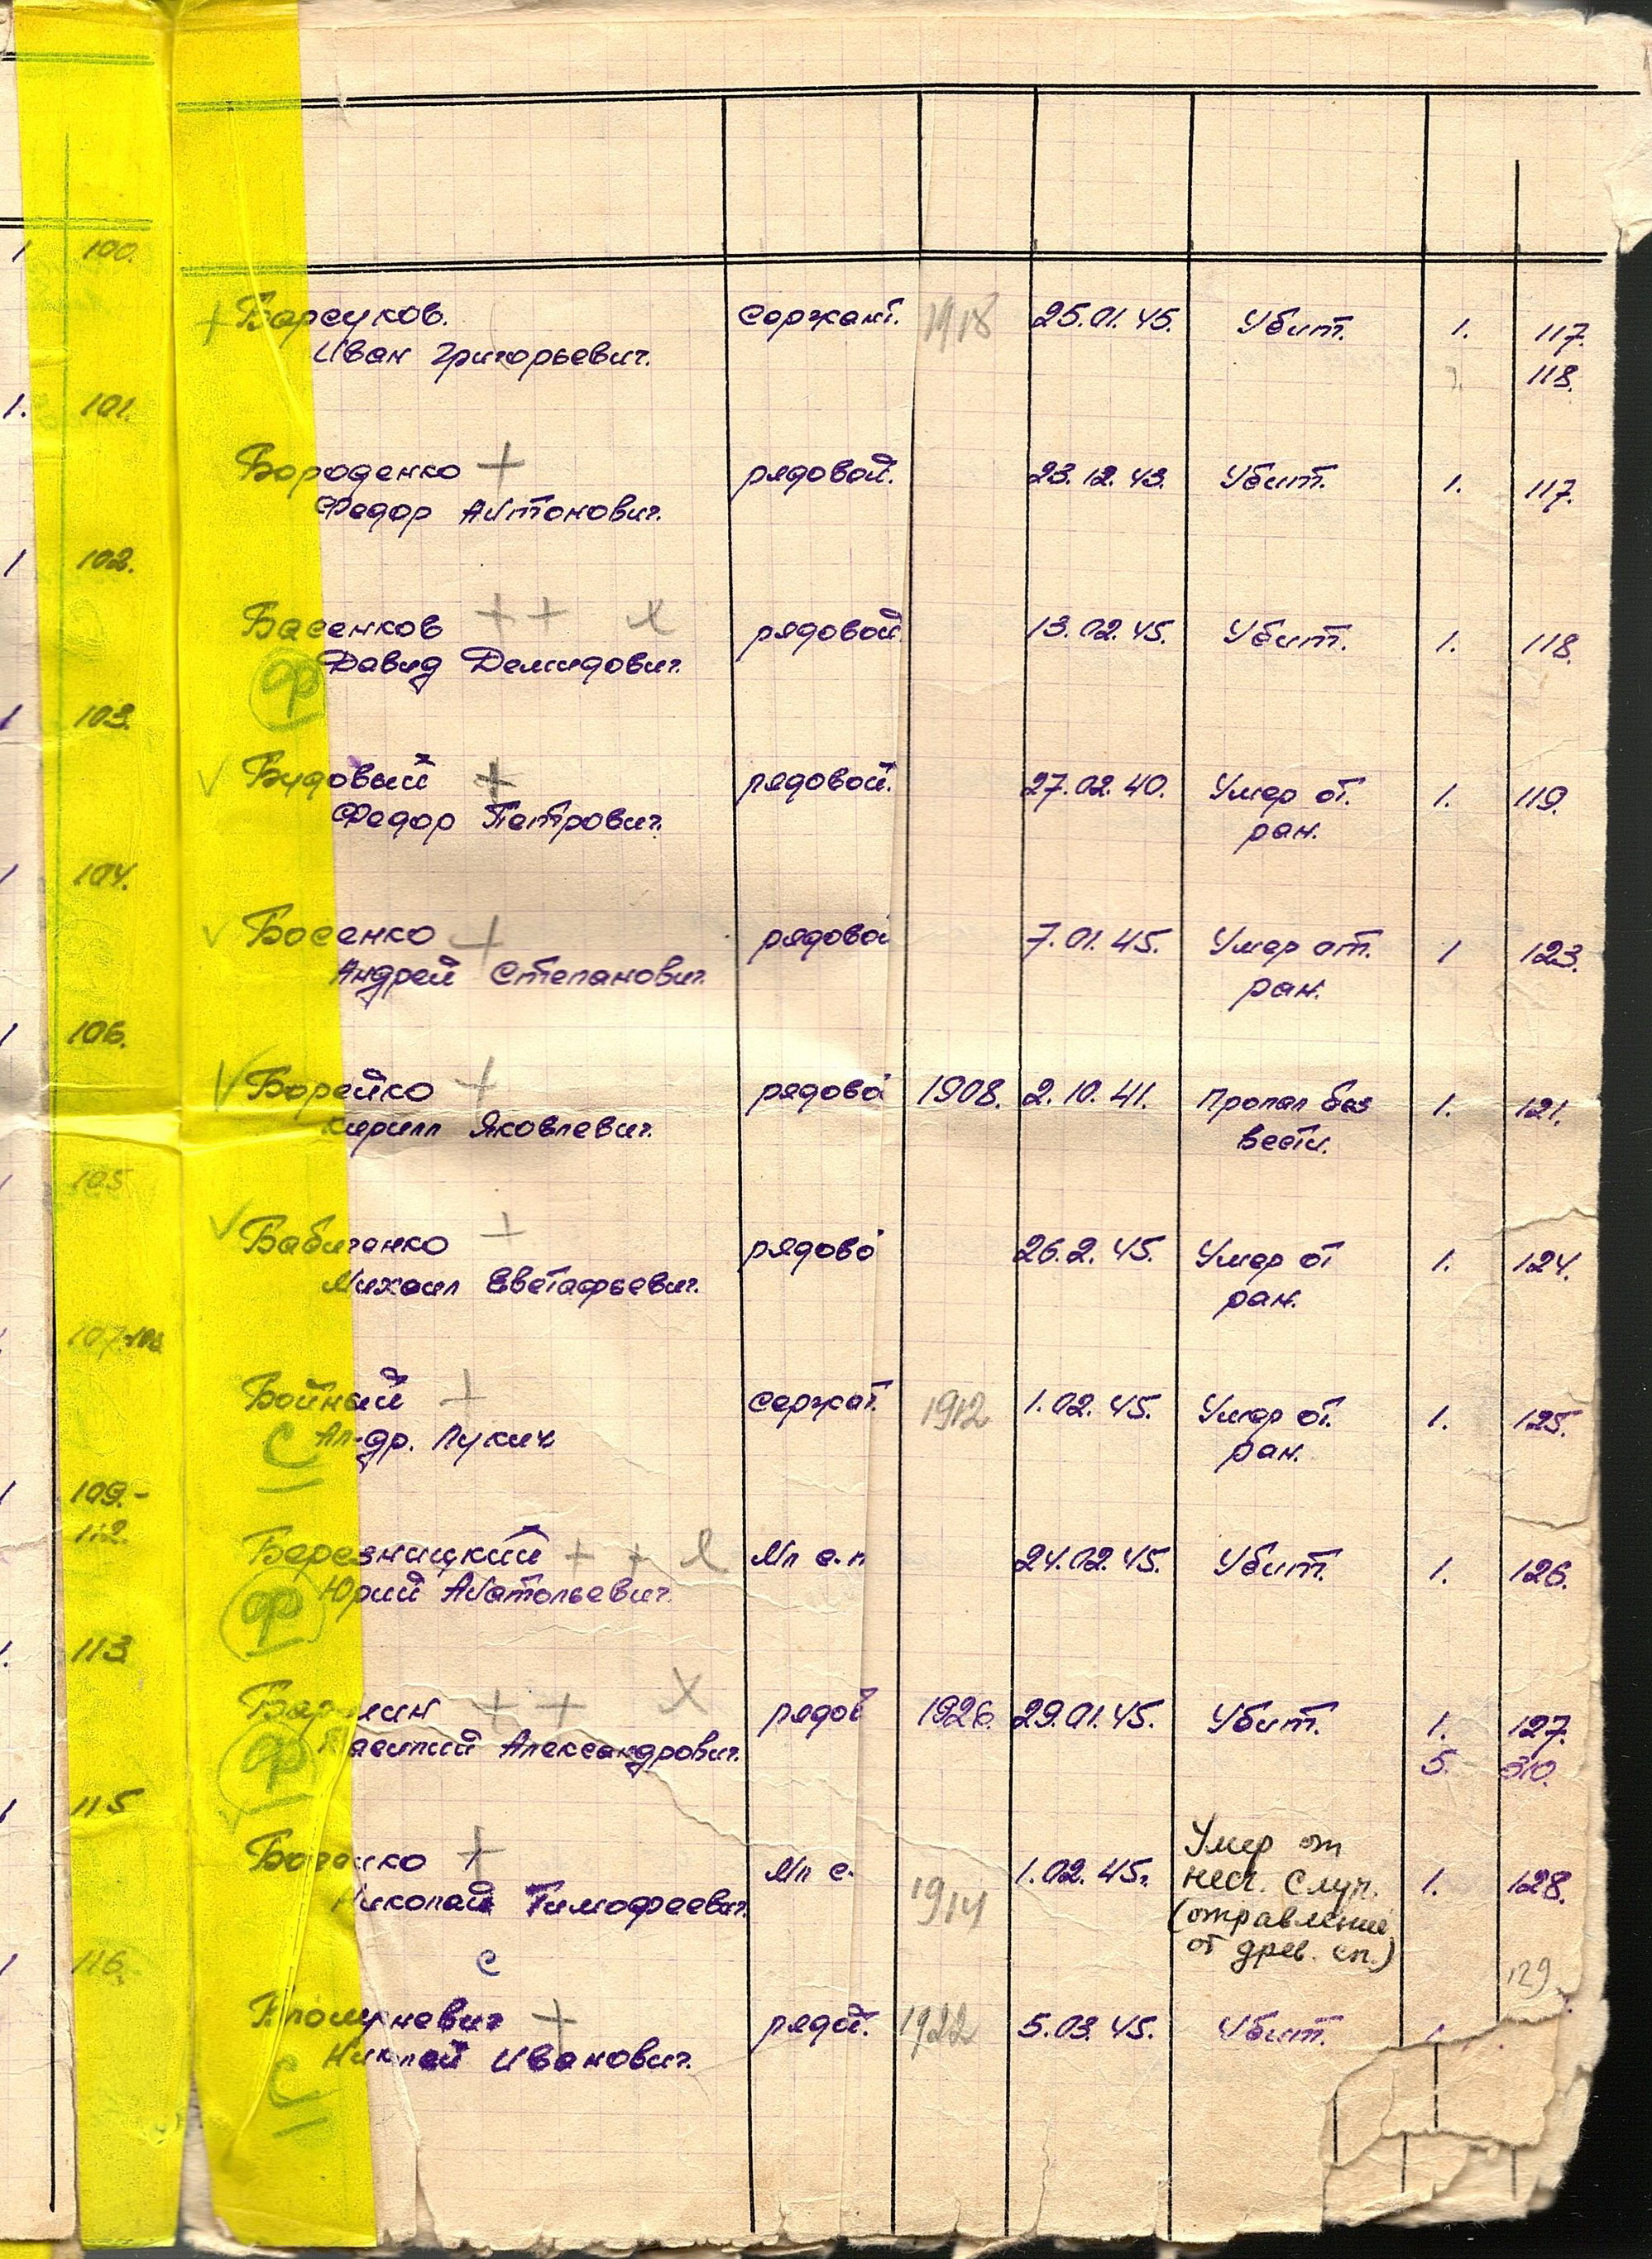 1 100.
Барсуков. Сержант. 1918 25.01.45. Убит. 1. 117.
Иван Григорьевич. 118.
1. 101.
Бороденко + рядовой. 23.12.43. Убит. 1. 117.
Федор Антонович.
1 102.
Басенков + + х рядовой 13.02.45. Убит. 1. 118.
Ф Давид Демидович.
1 103.
Будовый + рядовой. 27.02.40. Умер от. 1. 119.
Федор Петрович. ран.
1 104.
Босенко + рядовой 7.01.45. Умер от. 1 123.
Андрей Степанович. ран.
1 106.
Борейко + рядово 1908. 2.10.41. Пропал без 1. 121.
Кирилл Яковлевич. вести.
105
Бабиченко + рядово 26.2.45. Умер от 1. 124.
Михаил Евстафьевич. ран.
107-108
Бойный + сержат. 1912 1.02.45. Умер от. 1. 125.
С Ал-др. Лукич ран.
1 109.-
112.
Березницкий + + х Мл с-н 24.02.45. Убит. 1. 126.
Ф Юрий Анатольевич.
1. 113
+ + Х рядов 1926. 29.01.45. Убит. 1. 127.
Ф Василий Александрович. 5. 310.
1 115
Умер от
+ Мл с. 1.02.45. несч. случ. 1. 128.
Николай Тимофеевич. 1914 (отравление
от древ. сп.)
1 116. с 129
+ рядов. 1922 5.03.45. Убит. 1.
С Николай Иванович.